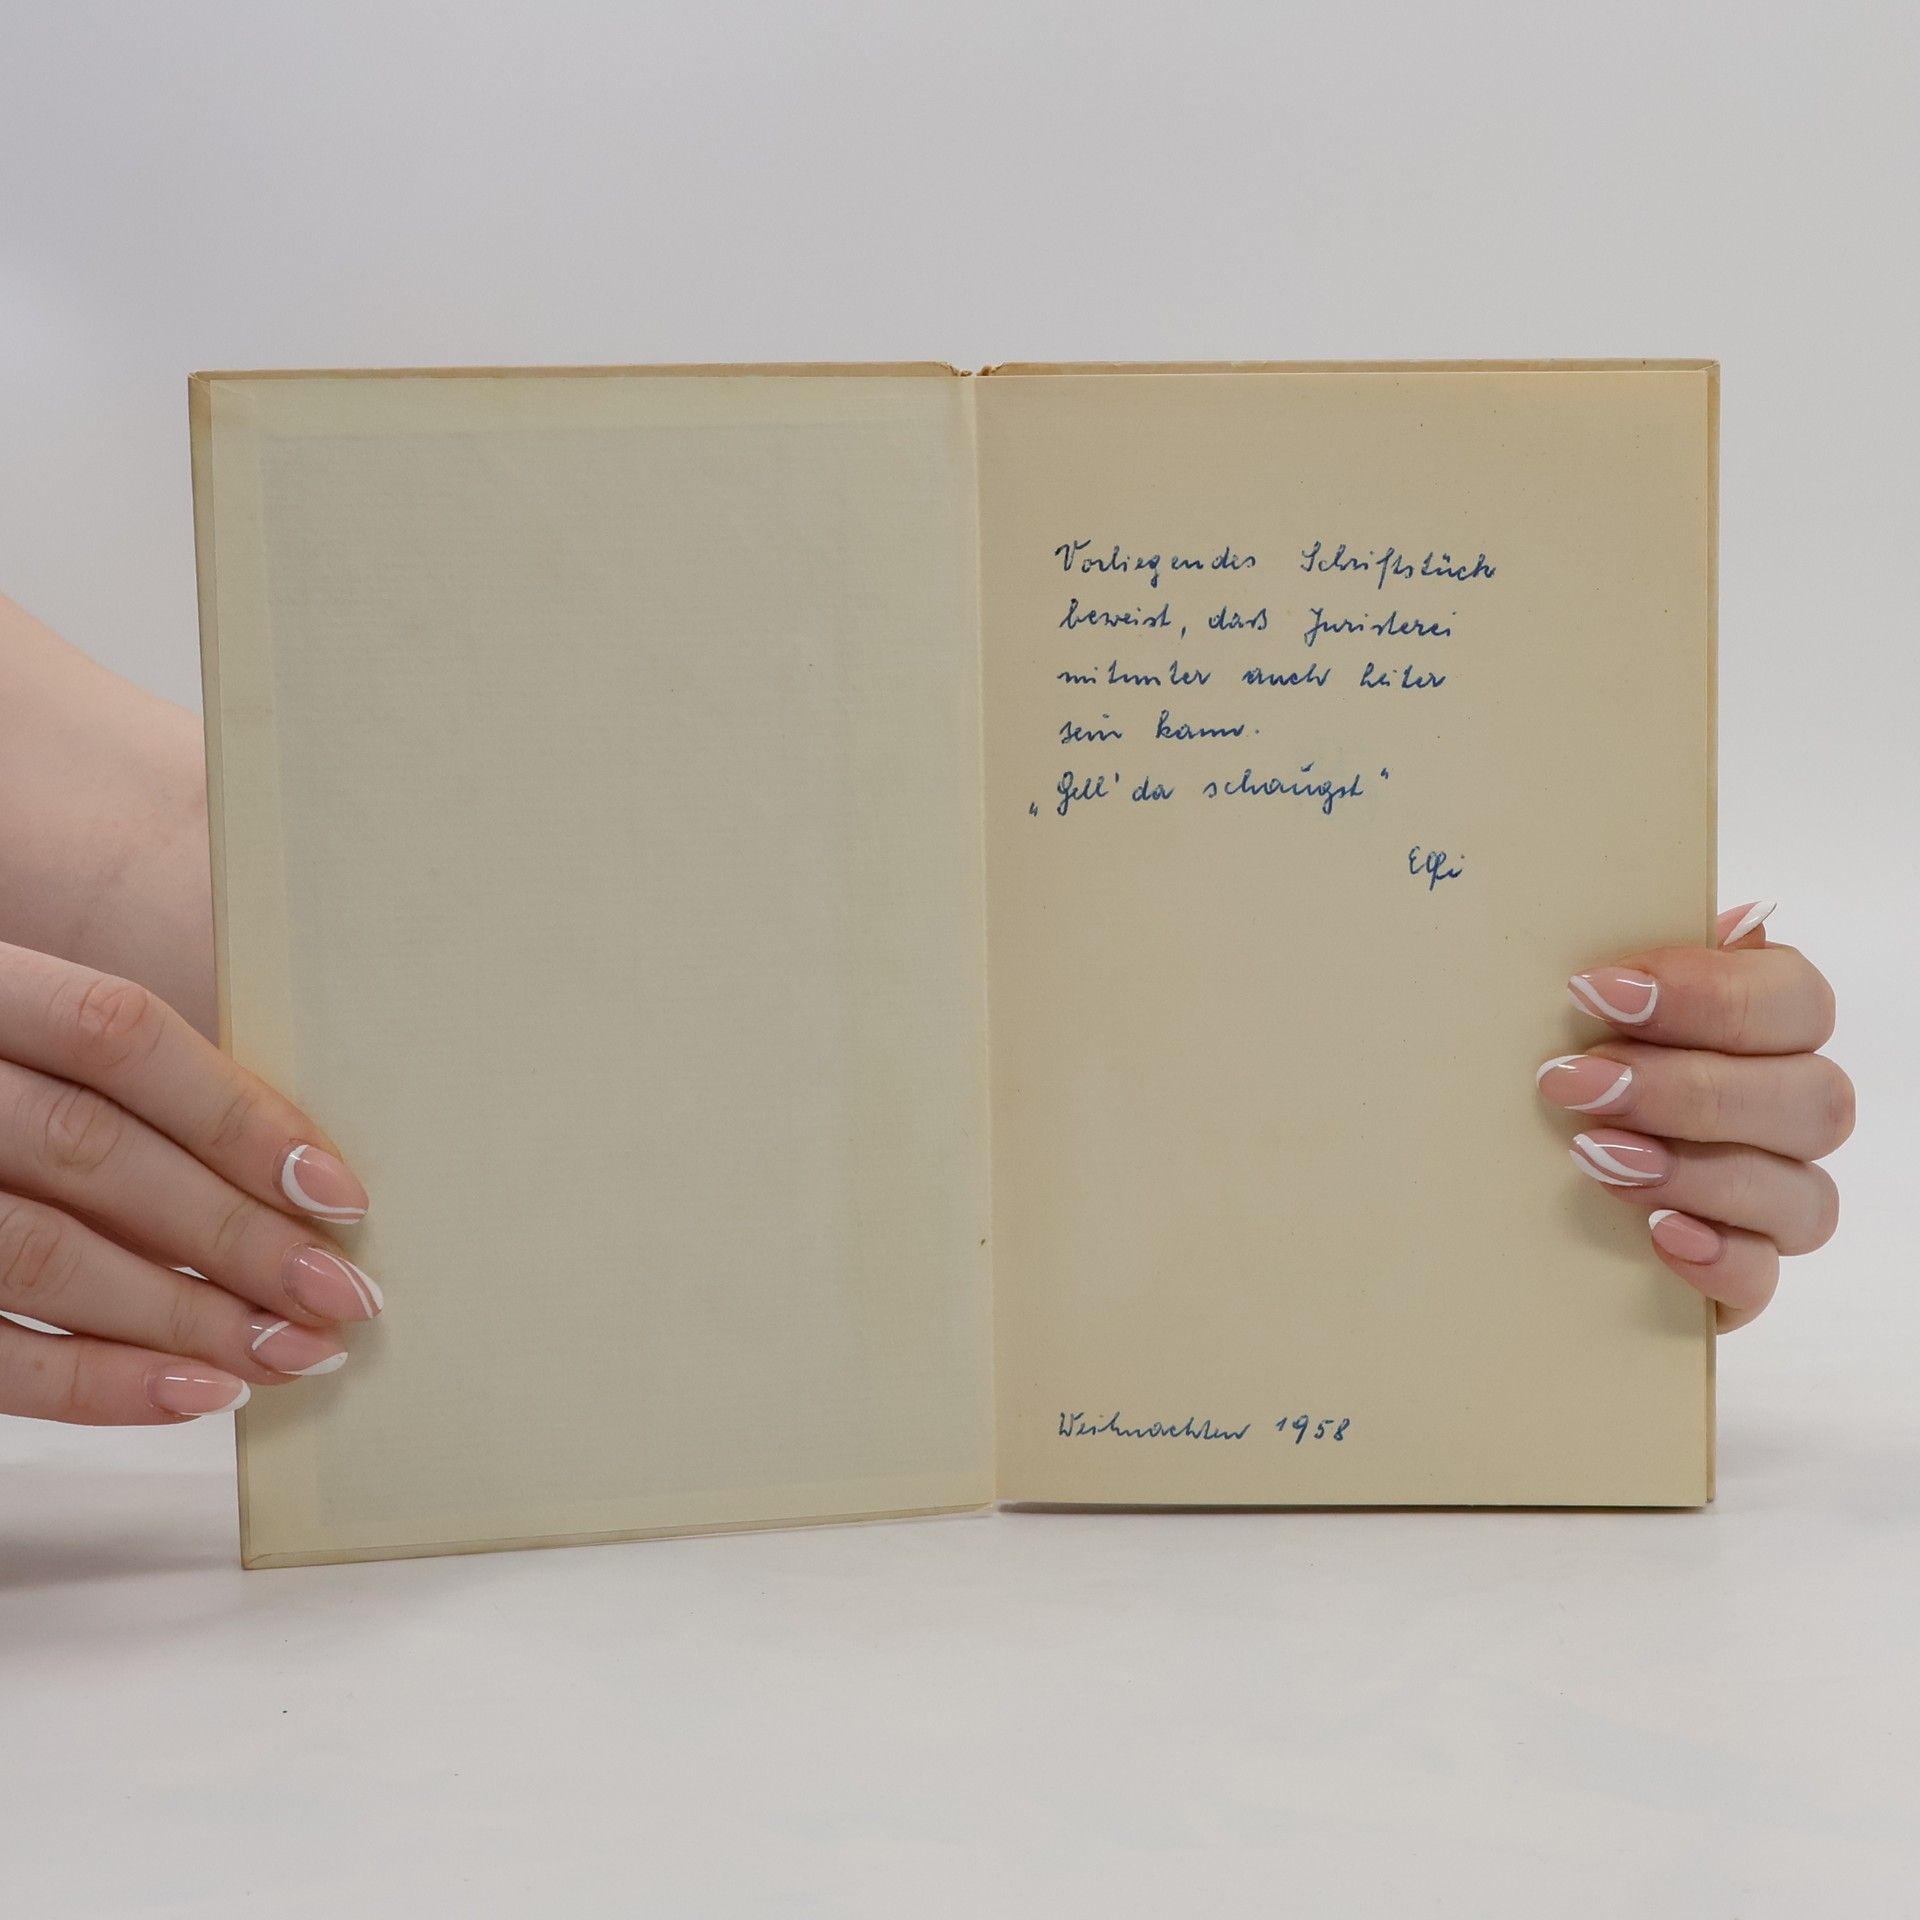 Vorliegendes Schriftstück
beweist, daß Juristerei
mitunter auch heiter
sein kann.
„Gell' da schaugst“
Elfi
Weihnachten 1958